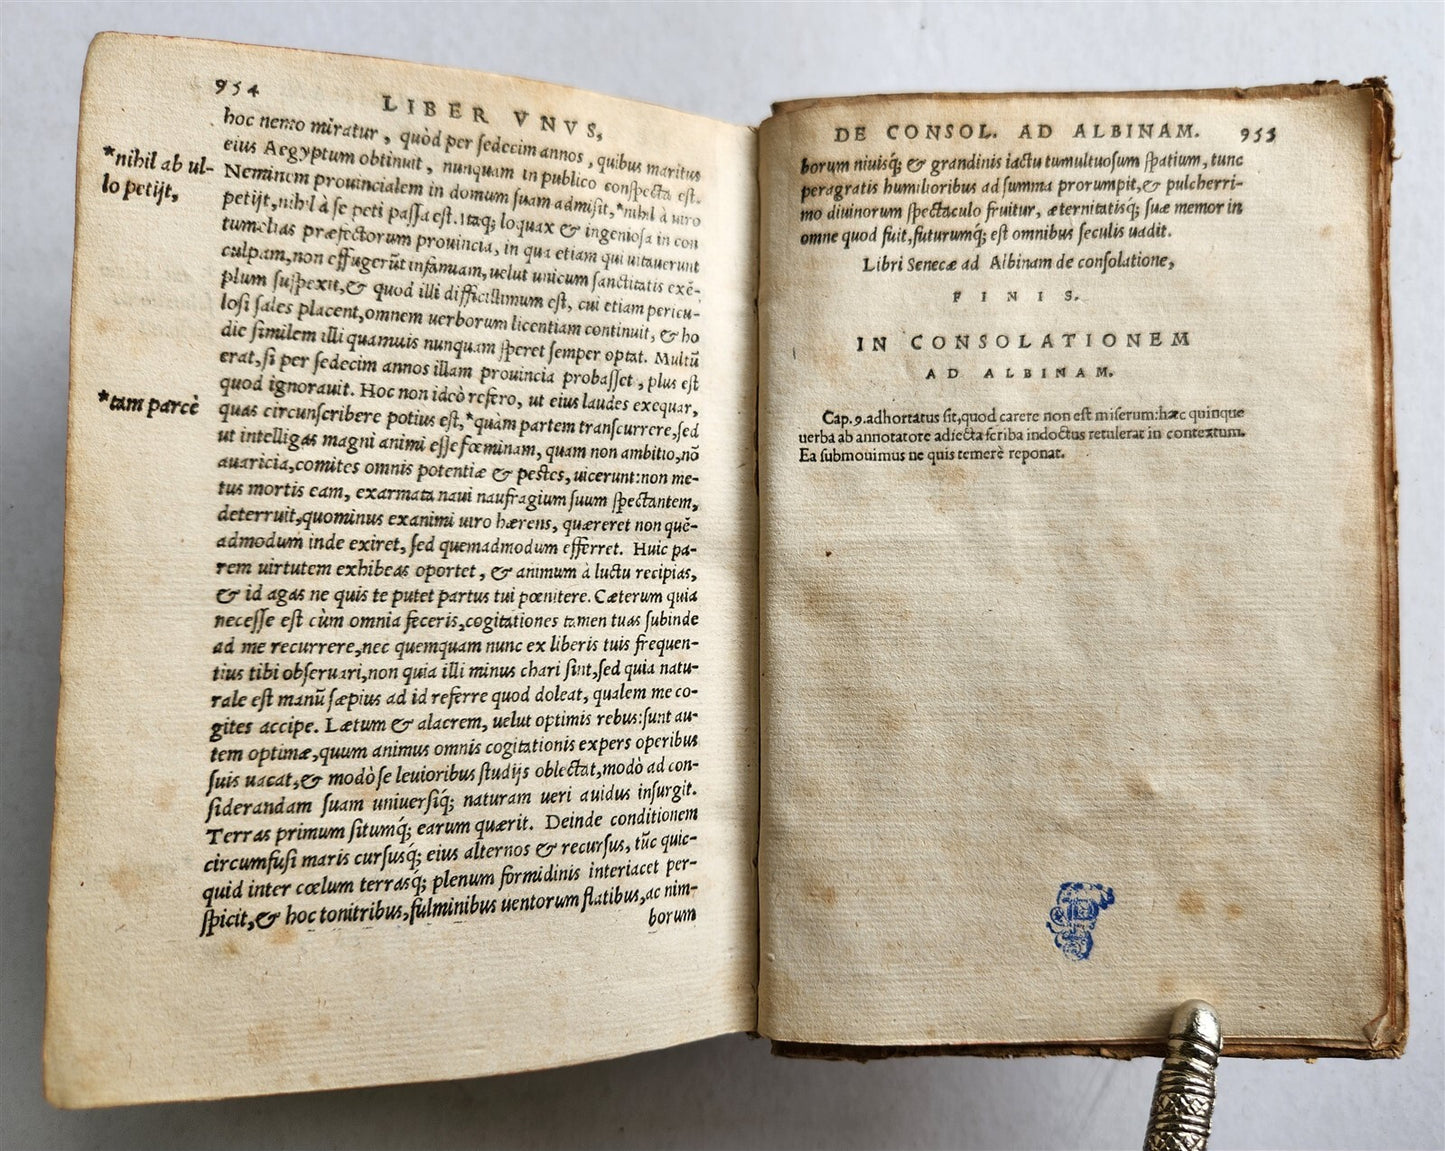 954
LIBER VNVS,
hoc nemo miratur, quòd per sedecim annos, quibus maritus
eius Aegyptum obtinuit, nunquam in publico conspecta est.
*nihil ab ul-
lo petijt,
Neminem prouincialem in domum suam admisit,*nihil à uiro
petijt,nihil à se peti passa est. Itaq; loquax & ingeniosa in con
tumelias præfectorum prouincia, in qua etiam qui uitauerunt
culpam,non effugerũt infamiam, uelut unicum sanctitatis exẽ-
plum suspexit,& quod illi difficillimum est, cui etiam pericu-
losi sales placent,omnem uerborum licentiam continuit, & ho
die similem illi quamuis nunquam speret semper optat. Multũ
erat,si per sedecim annos illam prouincia probasset, plus est
quod ignorauit. Hoc non ideò refero, ut eius laudes exequar,
*tam parcè
quas circunscribere potius est,*quàm partem transcurrere,sed
ut intelligas magni animi esse fœminam, quam non ambitio,nõ
auaricia,comites omnis potentiæ & pestes, uicerunt:non me-
tus mortis eam, exarmata naui naufragium suum spectantem,
deterruit,quominus exanimi uiro hærens, quæreret non quẽ-
admodum inde exiret, sed quemadmodum efferret. Huic pa-
rem uirtutem exhibeas oportet, & animum à luctu recipias,
& id agas ne quis te putet partus tui pœnitere. Cæterum quia
necesse est cùm omnia feceris,cogitationes tamen tuas subinde
ad me recurrere,nec quemquam nunc ex liberis tuis frequen-
tius tibi obseruari,non quia illi minus chari sint,sed quia natu-
rale est manũ sæpius ad id referre quod doleat, qualem me co-
gites accipe. Lætum & alacrem, uelut optimis rebus:sunt au-
tem optimæ,quum animus omnis cogitationis expers operibus
suis uacat,& modò se leuioribus studijs oblectat,modò ad con-
siderandam suam uniuersiq́; naturam ueri auidus insurgit.
Terras primum situmq́; earum quærit. Deinde conditionem
circumfusi maris cursusq́; eius alternos & recursus, tũc quic-
quid inter cœlum terrasq́; plenum formidinis interiacet per-
spicit,& hoc tonitribus,fulminibus uentorum flatibus,ac nim-
borum
DE CONSOL. AD ALBINAM. 955
borum niuisq́; & grandinis iactu tumultuosum spatium, tunc
peragratis humilioribus ad summa prorumpit,& pulcherri-
mo diuinorum spectaculo fruitur, æternitatisq́; suæ memor in
omne quod fuit,futurumq́; est omnibus seculis uadit.
Libri Senecæ ad Albinam de consolatione,
FINIS.
IN CONSOLATIONEM
AD ALBINAM.
Cap.9.adhortatus sit,quod carere non est miserum:hæc quinque
uerba ab annotatore adiecta scriba indoctus retulerat in contextum.
Ea submouimus ne quis temerè reponat.